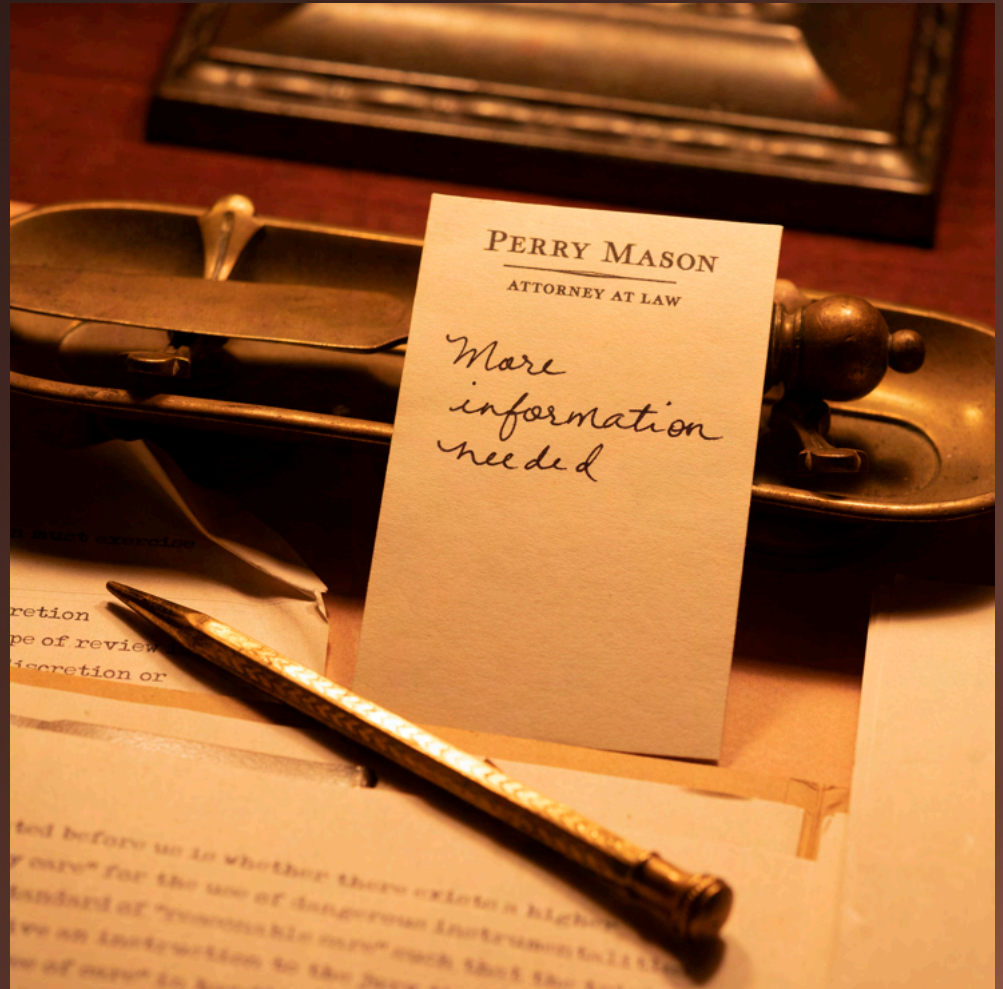 PERRY MASON
ATTORNEY AT LAW
More
information
needed
must exercise
retion
pe of review
iscretion or
ted before us is whether there exists a higher
y care" for the use of dangerous instrumentalitie
tandard of "reasonable care" such that the
ive an instruction to the jury
of care" in